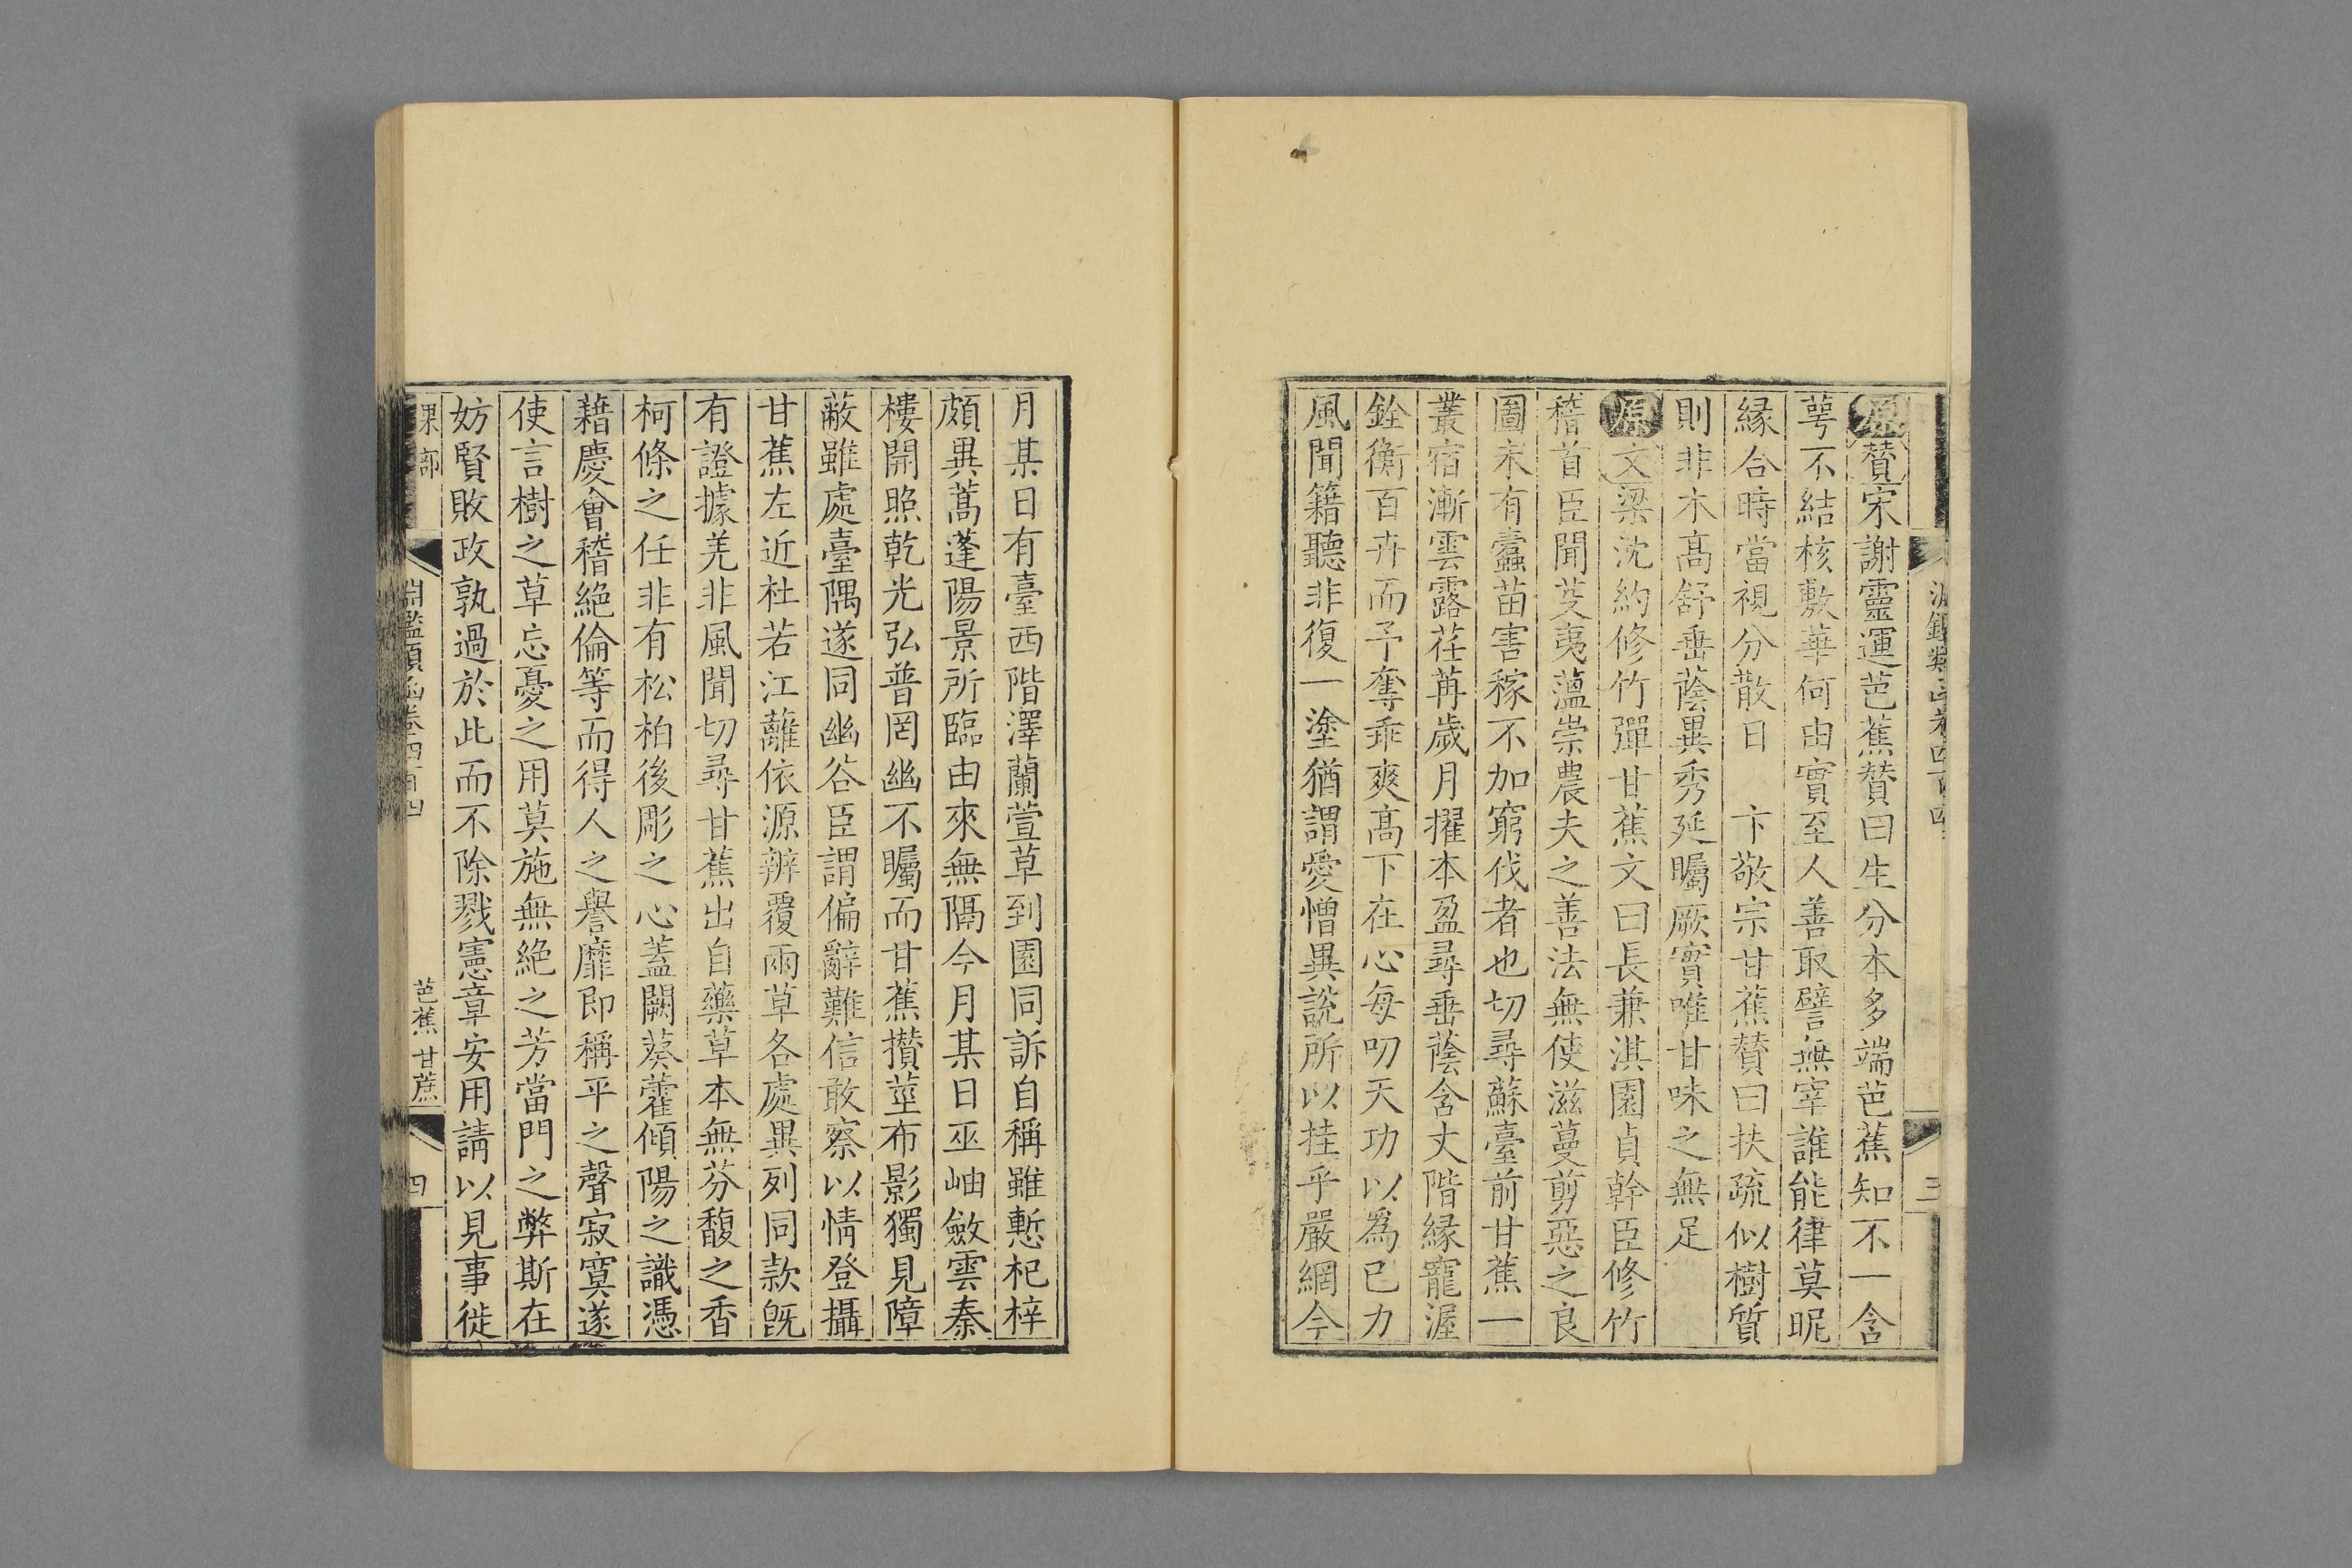 淵鑑類函卷四百四
三
原贊宋謝靈運芭蕉贊曰生分本多端芭蕉知不一含
萼不結核敷華何由實至人善取譬無宰誰能律莫昵
緣合時當視分散日 卞敬宗甘蕉贊曰扶疏似樹質
則非木高舒垂蔭異秀延矚厥實唯甘味之無足
原文梁沈約修竹彈甘蕉文曰長兼淇園貞幹臣修竹
稽首臣聞芟夷薀崇農夫之善法無使滋蔓剪惡之良
圖未有蠹苗害稼不加窮伐者也切尋蘇臺前甘蕉一
叢宿漸雲露荏苒歲月擢本盈尋垂蔭含丈階緣寵渥
銓衡百卉而予奪乖爽高下在心每叨天功以為已力
風聞籍聽非復一塗猶謂愛憎異說所以挂乎嚴網今
月某日有臺西階澤蘭萱草到園同訴自稱雖慙杞梓
頗異蒿蓬陽景所臨由來無隔今月某日巫岫斂雲秦
樓開照乾光弘普罔幽不矚而甘蕉攢莖布影獨見障
蔽雖處臺隅遂同幽谷臣謂偏辭難信敢察以情登攝
甘蕉左近杜若江蘺依源辨覆兩草各處異列同款既
有證據羌非風聞切尋甘蕉出自藥草本無芬馥之香
柯條之任非有松柏後彫之心蓋闕葵藿傾陽之識憑
藉慶會稽絕倫等而得人之譽靡即稱平之聲寂寞遂
使言樹之草忘憂之用莫施無絕之芳當門之弊斯在
妨賢敗政孰過於此而不除戮憲章安用請以見事徙
果部
淵鑑類函卷四百四
芭蕉 甘蔗
四